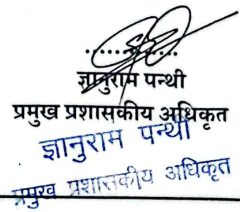 ..............
ज्ञानुराम पन्थी
प्रमुख प्रशासकीय अधिकृत
ज्ञानुराम पन्थी
प्रमुख प्रशासकीय अधिकृत